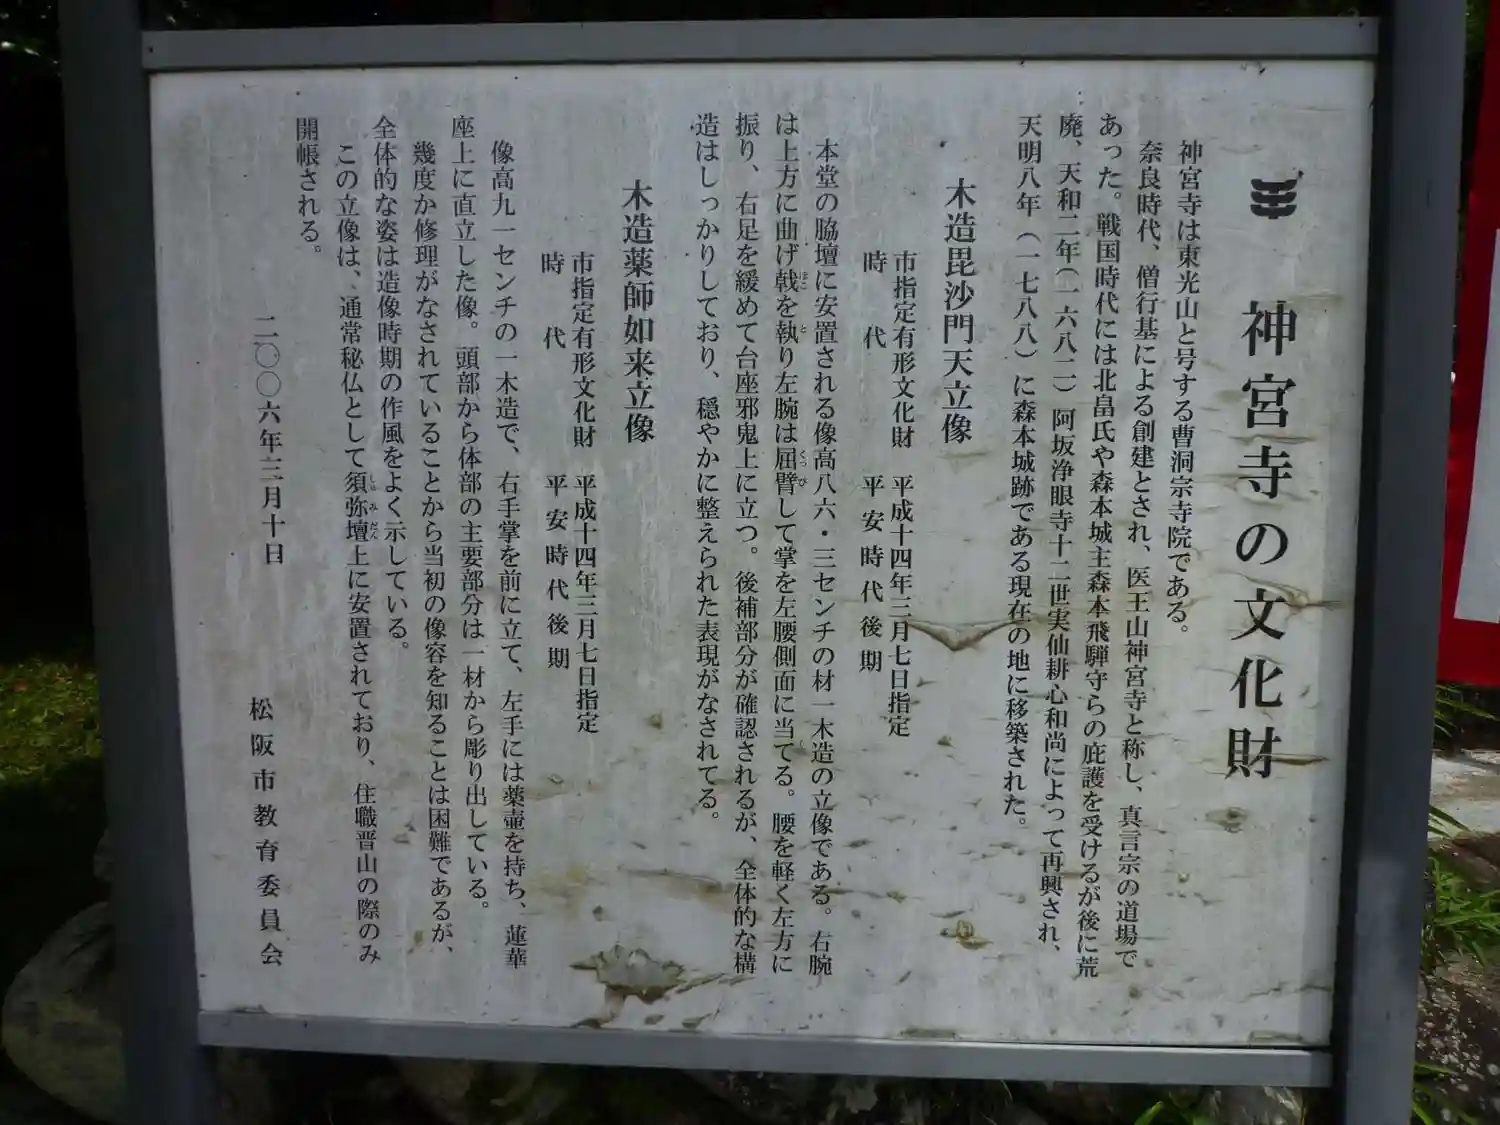 神宮寺の文化財
神宮寺は東光山と号する曹洞宗寺院である。
奈良時代、僧行基による創建とされ、医王山神宮寺と称し、真言宗の道場で
あった。戦国時代には北畠氏や森本城主森本飛騨守らの庇護を受けるが後に荒
廃、天和二年（一六八二）阿坂浄眼寺十二世実仙耕心和尚によって再興され、
天明八年（一七八八）に森本城跡である現在の地に移築された。
木造毘沙門天立像
市指定有形文化財　平成十四年三月七日指定
時代　平安時代後期
本堂の脇壇に安置される像高八六・三センチの材一木造の立像である。右腕
は上方に曲げ戟を執り左腕は屈臂して掌を左腰側面に当てる。腰を軽く左方に
振り、右足を緩めて台座邪鬼上に立つ。後補部分が確認されるが、全体的な構
造はしっかりしており、穏やかに整えられた表現がなされてる。
木造薬師如来立像
市指定有形文化財　平成十四年三月七日指定
時代　平安時代後期
像高九一センチの一木造で、右手掌を前に立て、左手には薬壷を持ち、蓮華
座上に直立した像。頭部から体部の主要部分は一材から彫り出している。
幾度か修理がなされていることから当初の像容を知ることは困難であるが、
全体的な姿は造像時期の作風をよく示している。
この立像は、通常秘仏として須弥壇上に安置されており、住職晋山の際のみ
開帳される。
二〇〇六年三月十日
松阪市教育委員会